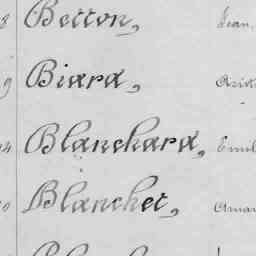 8 Betton, Jean
9 Biard, Arist
Blanchard, Emil
Blanchet, Aman